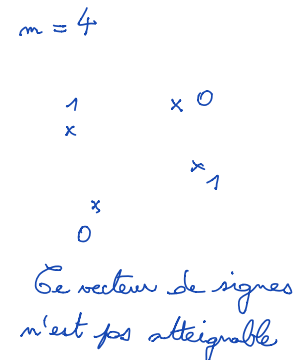 m = 4
1 x 0
x
x 1
x
0
Ce vecteur de signes
n'est pas atteignable